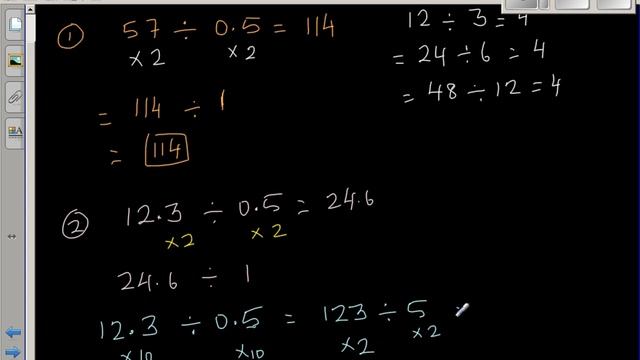 ① 57 ÷ 0.5 = 114
×2 ×2
= 114 ÷ 1
= 114
12 ÷ 3 = 4
= 24 ÷ 6 = 4
= 48 ÷ 12 = 4
② 12.3 ÷ 0.5 = 24.6
×2 ×2
24.6 ÷ 1
12.3 ÷ 0.5 = 123 ÷ 5
×10 ×10 ×2 ×2